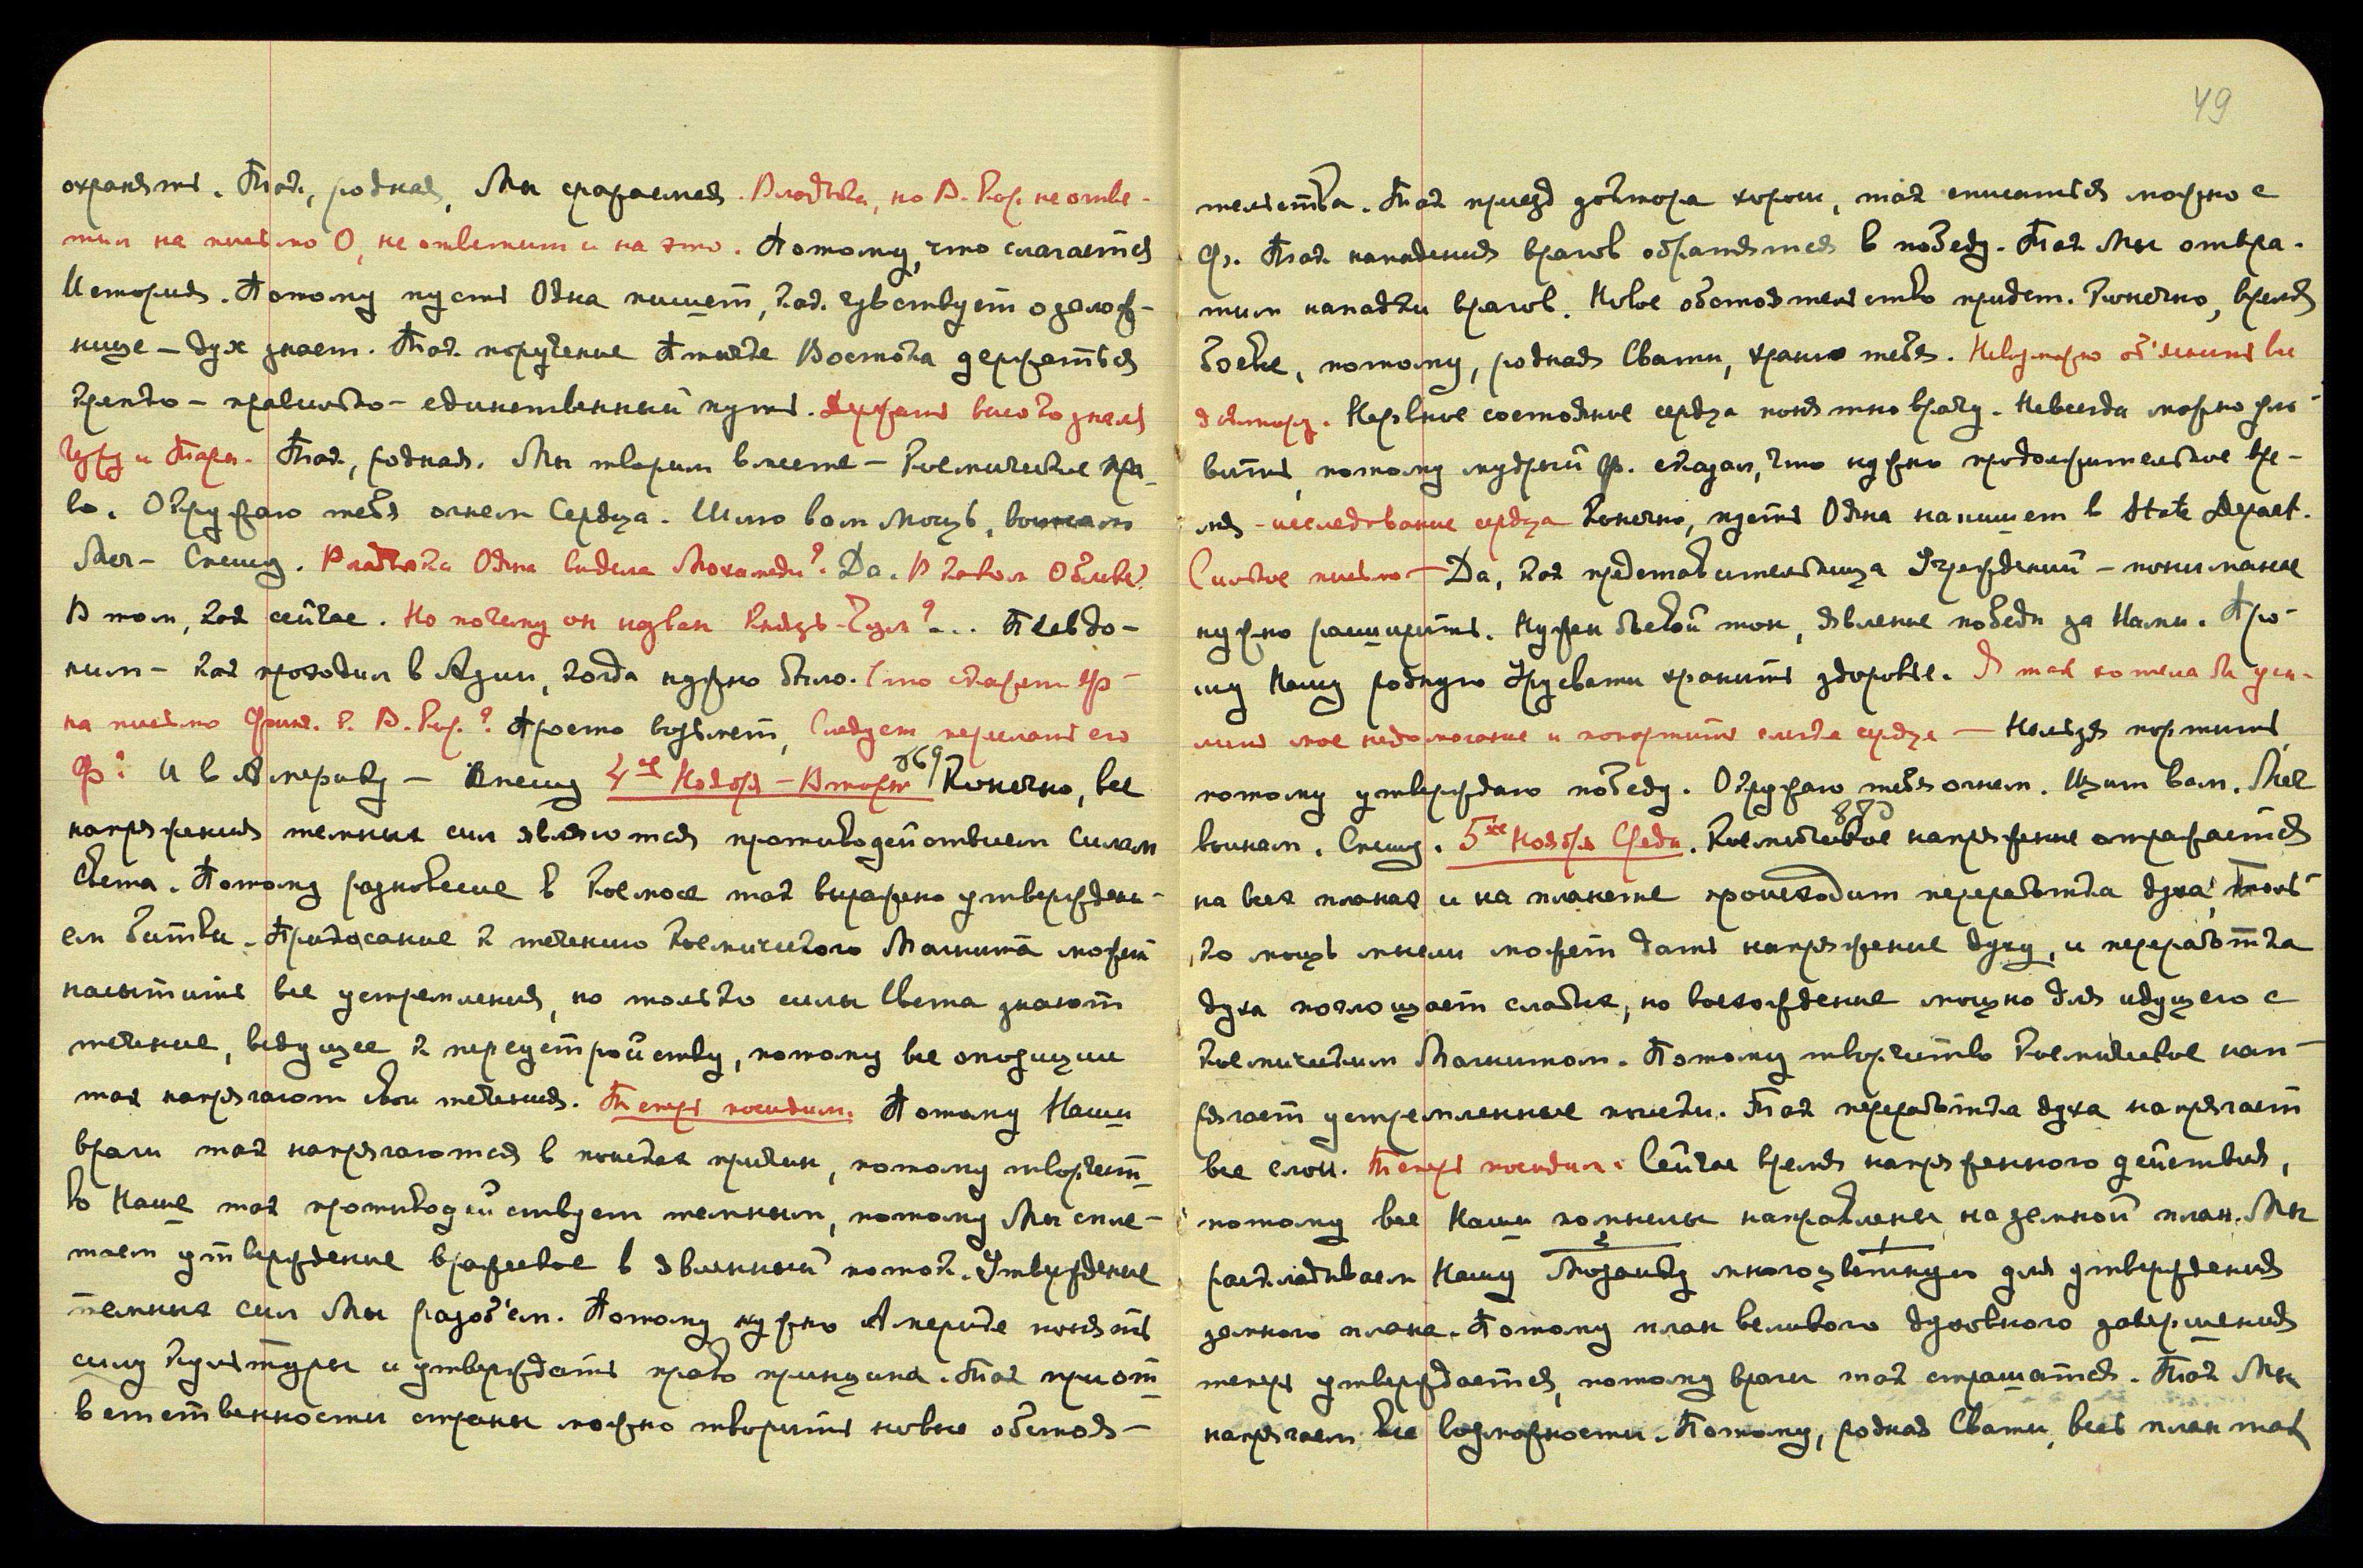 охранять. Так, родная, Мы сражаемся. Владыка, но В. Кор. не отве-
тил на письмо О, не ответит и на это. Потому, что слагается
История. Потому пусть Одна пишет, как чувствует о залож-
нице – дух знает. Так поручение Птичке Востока держаться
крепко – правильно – единственный путь. Держать высоко знамя
Гуру и Тары. Так, родная. Мы творим вместе – Космическое пра-
во. Окружаю тебя огнем Сердца. Шлю вам мощь, воинам
Меч – Спешу. Владыка Одна видела Мохамеди? Да. В каком Облике?
В том, как сейчас. Но почему он назван Князь-Гуза?... Псевдо-
ним – как проходил в Азии, когда нужно было. Что скажет Фр-
на письмо Фрик. к В. Кор.? Просто возьмет, Следует переслать его
Ф? И в Америку – Спешу 4ое Ноября – Вторн 869 Конечно, все
напряжения темных сил являются противодействием Силам
Света. Потому равновесие в Космосе так выражено утвержден-
ем битвы. Прикасание к течению Космического Магнита может
насытить все устремления, но только силы Света знают
течение, ведущее к переустройству, потому все оппозиции
так напрягают свои течения. Теперь посидим. Потому Наши
враги так напрягаются в поисках причин, потому творчест-
во Наше так противодействует темным, потому Мы спле-
таем утверждение вражеское в явленный поток. Утверждение
темных сил Мы разоб'ем. Потому нужно Америке понять
силу Культуры и утверждать право принципа. Так при от-
ветственности страны можно творить новые обстоя-
49
тельства. Так приезд доктора хорош, так списаться можно с
Ф. Так нападения врагов обратятся в победу. Так Мы отвра-
тим нападки врагов. Новое обстоятельство придет. Конечно, время
боевое, потому, родная Свати, храню тебя. Невозможно об'яснить все
доктору. Нервное состояние сердца понятно врачу. Не всегда можно уло-
вить, потому мудрый Ф. сказал, что нужно продолжительное вре-
мя – исследование сердца Конечно, пусть Одна напишет в State Depart.
Сильное письмо – Да, как представительница Учреждений – понимание
нужно расширить. Нужен боевой тон, явление победы за Нами. Про-
шу Нашу родную Урусвати хранить здоровье. Я так хотела бы уси-
лить мое недомогание и попортить слегка сердце – Нельзя портить,
потому утверждаю победу. Окружаю тебя огнем. Щит вам. Меч
воинам. Спешу. 5ое Ноября Среда. 880 Космическое напряжение отражается
на всех планах и на планете происходит переработка духа, толь-
ко мощь мысли может дать напряжение духу, и переработка
духа поглощает слабых, но восхождение мощно для идущего с
Космическим Магнитом. Потому творчество Космическое нап-
рягает устремленные поиски. Так переработка духа напрягает
все слои. Теперь посидим. Сейчас время напряженного действия,
потому все Наши помыслы направлены на земной план. Мы
раскладываем Нашу Мозаику многоцветную для утверждения
земного плана. Потому план великого духовного завершения
теперь утверждается, потому враги так страшатся. Так Мы
напрягаем все возможности. Потому, родная Свати, весь план так